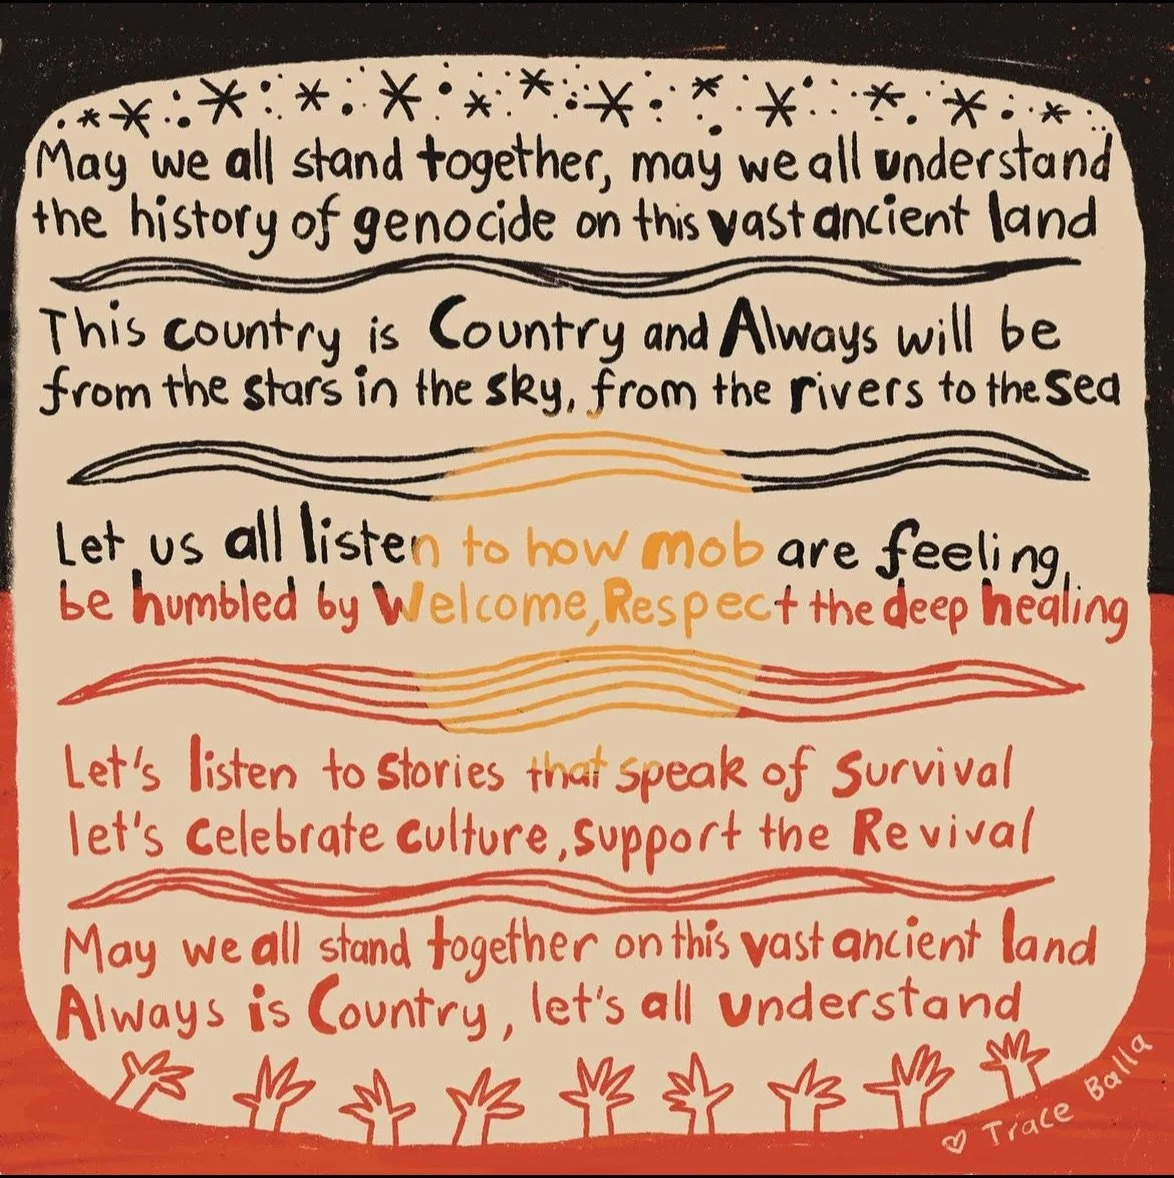 May we all stand together, may we all understand
the history of genocide on this vast ancient land
This country is Country and Always will be
from the stars in the sky, from the rivers to the sea
Let us all listen to how mob are feeling,
be humbled by Welcome, Respect the deep healing
Let's listen to stories that speak of Survival
let's celebrate culture, support the Revival
May we all stand together on this vast ancient land
Always is Country, let's all understand
♡ Trace Balla